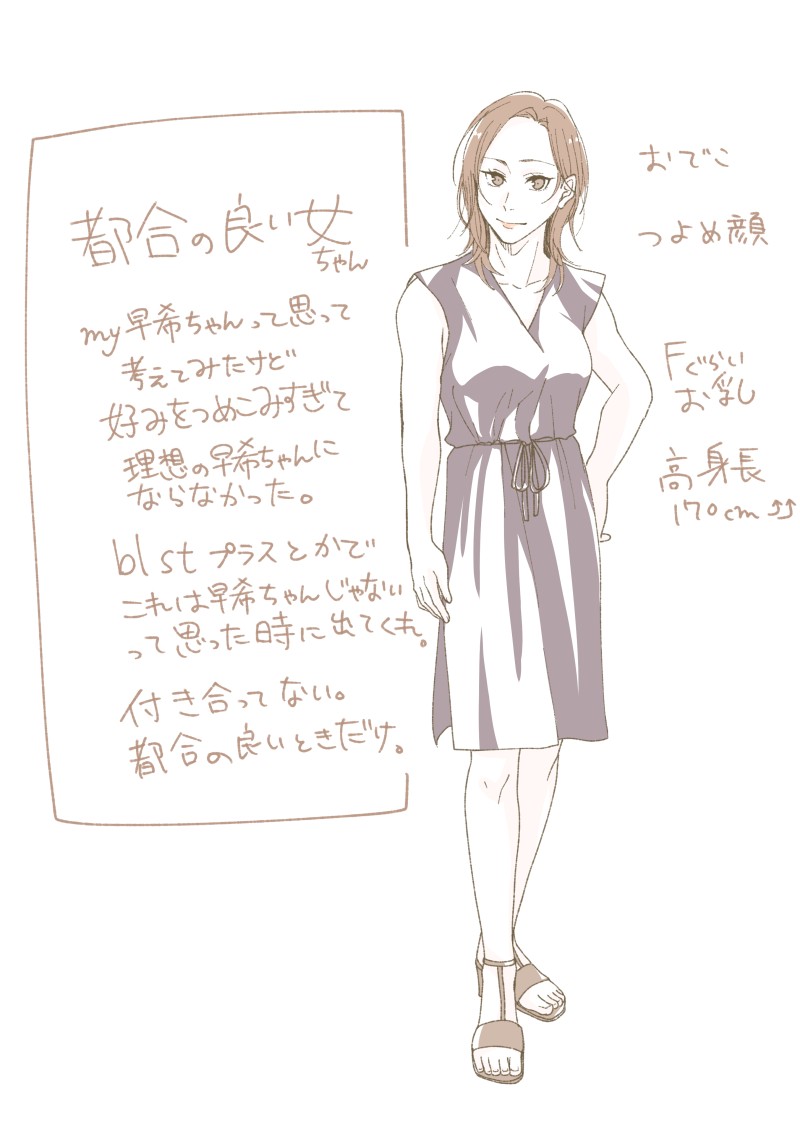 都合の良い女
ちゃん
my早希ちゃんって思って
考えてみたけど
好みをつめこみすぎて
理想の早希ちゃんに
ならなかった。
bl stプラスとかで
これは早希ちゃんじゃない
って思った時に出てくれ。
付き合ってない。
都合の良いときだけ。
おでこ
つよめ顔
Fぐらい
お乳
高身長
170cm⤴⤴